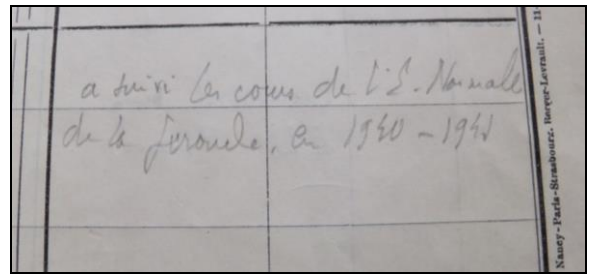 a suivi les cours de l'E. Normale
de la Gironde, en 1940-1941
Nancy-Paris-Strasbourg. Berger-Levrault. — 11-